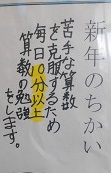 新年のちかい
苦手な算数
を克服するため
毎日0分以上
算数の勉強
をします。